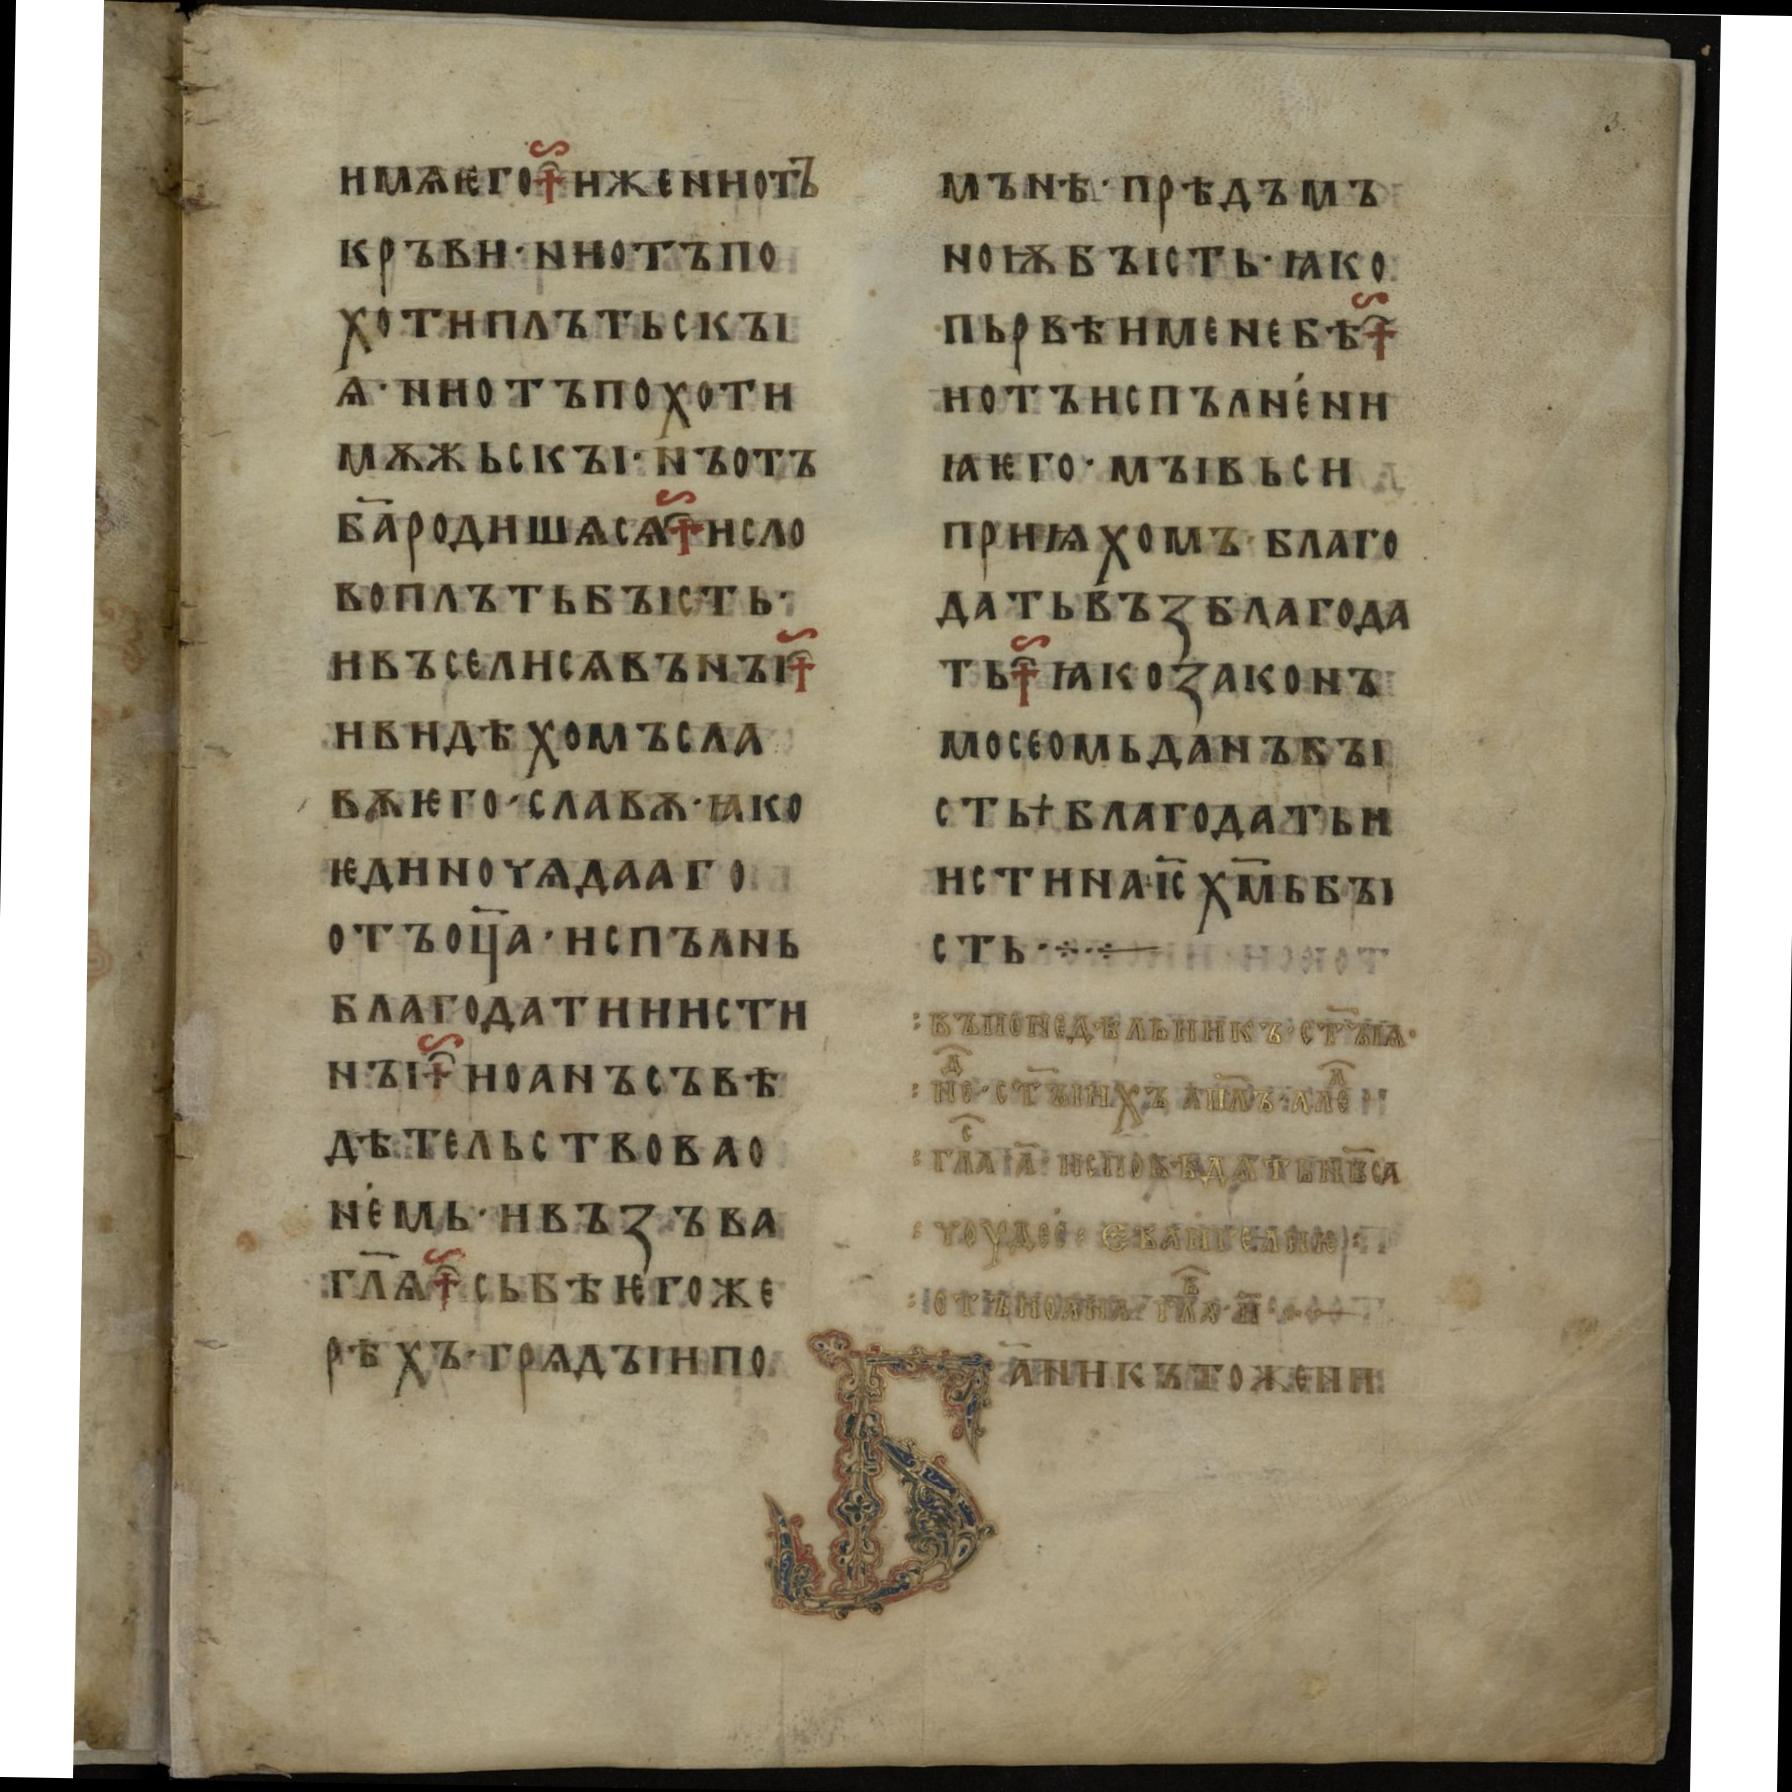 имѧѥго иженнотъ
кръви·ннотъпо
хотиплътьскꙑ
ѩ·ннотъпохоти
мѫжьскꙑ·нъотъ
ба҃родишѧсѧ исло
воплътьбꙑсть·
ивъселисѧвънꙑ
ивидѣхомъсла
вѫѥго·славѫ·ꙗко
ѥдиночѧдааго
отъоц҃а·испълнь
благодатииисти
нꙑ иоанъсъвѣ
дѣтельствовао
немь·ивъзъва
гл҃ѧ сьбѣѥгоже
рѣхъ·грѧдꙑипо
мънѣ·прѣдъмъ
ноѭбꙑсть·ꙗко
пьрвѣименебѣ
иотъиспълнени
ꙗѥго·мꙑвьси
приѩхомъ·благо
датьвъзблагода
ть ꙗкозаконъ
мосеомьданъбꙑ
сть+благодатьи
истинаіс҃хм҃ьбꙑ
сть·
:въпонедѣльникъ·ст҃ꙑꙗ·
:не·ст҃ꙑихъ ап҃лъ·але
:гла а҃ исповѣдѧтьнб҃са
:чоудес:евангелиѥ:
:отъиоана·гла·и҃
Ба҃никътожени
3.